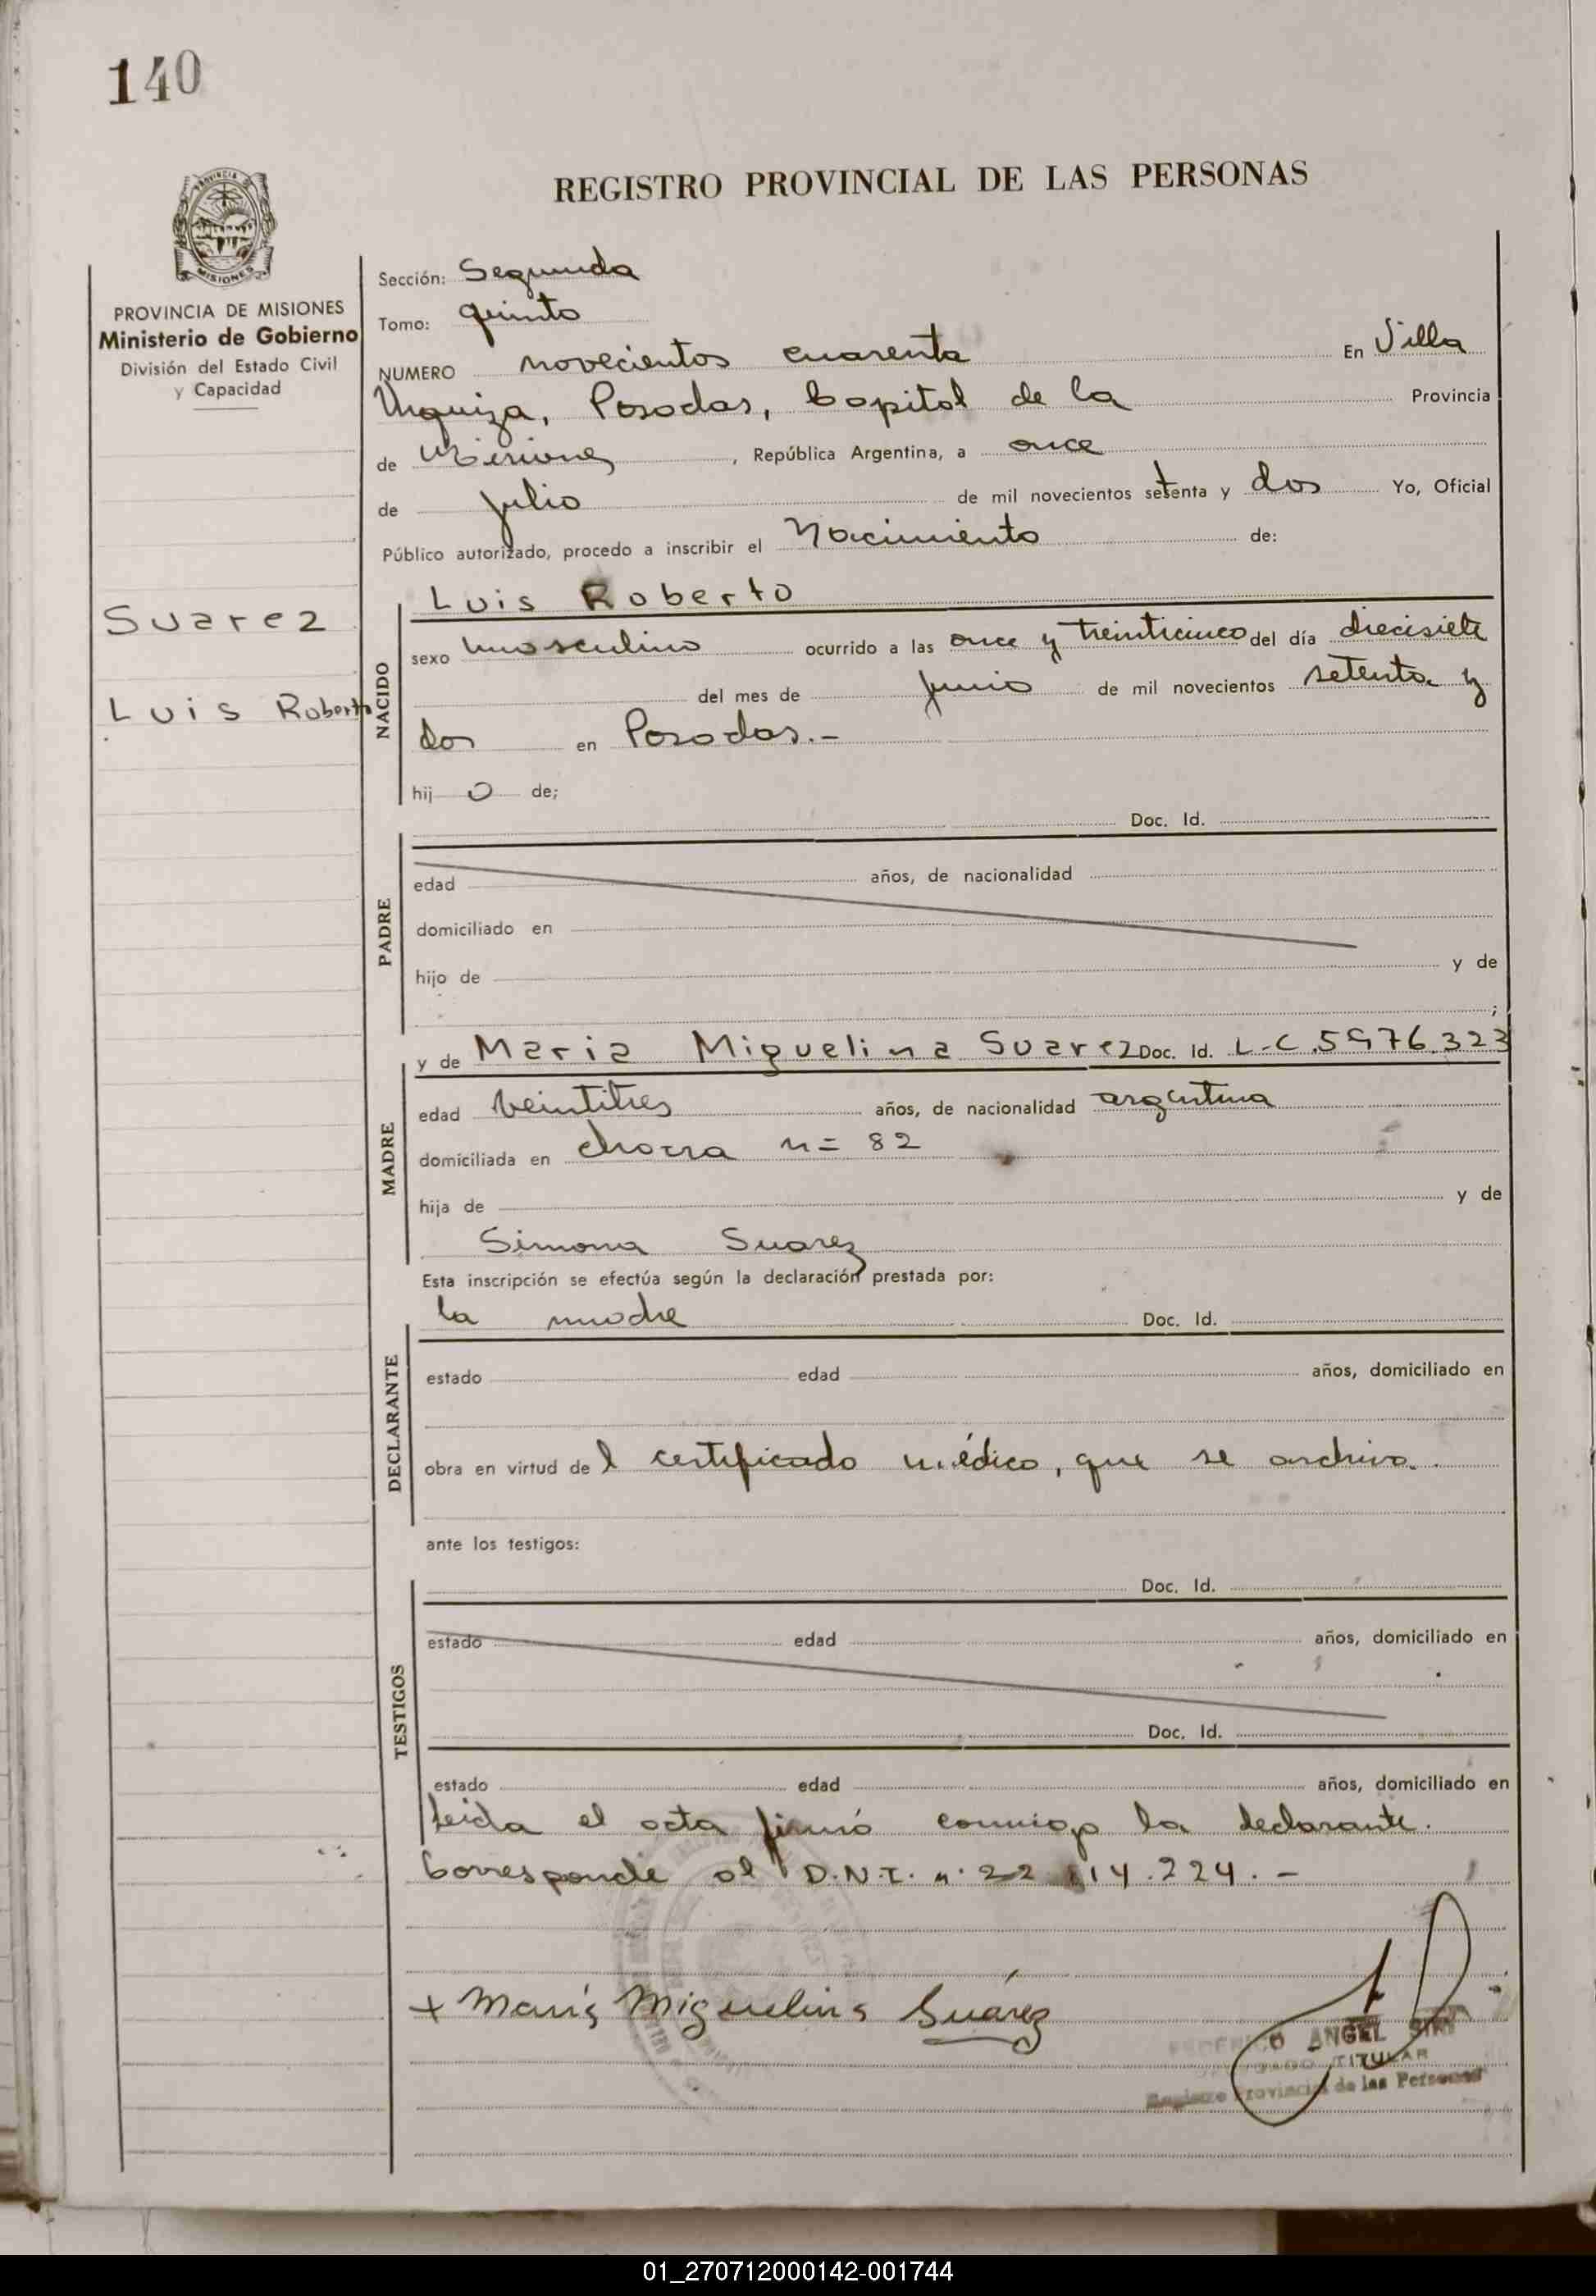 140
REGISTRO PROVINCIAL DE LAS PERSONAS
PROVINCIA DE MISIONES
Ministerio de Gobierno
División del Estado Civil
y Capacidad
Suarez
Luis Roberto
Sección: Segunda
Tomo: quinto
NUMERO novecientos cuarenta En Villa
Urquiza, Posadas, Capital de la Provincia
de Misiones, República Argentina, a once
de julio de mil novecientos setenta y dos Yo, Oficial
Público autorizado, procedo a inscribir el Nacimiento de:
Luis Roberto
NACIDO
sexo masculino ocurrido a las once y treinticinco del día diecisiete
del mes de junio de mil novecientos setenta y
dos en Posadas.-
hij o de;
Doc. Id.
PADRE
edad años, de nacionalidad
domiciliado en
hijo de y de
;
y de Maria Miguelina Suarez Doc. Id. L.C.5976.323
MADRE
edad veintitres años, de nacionalidad argentina
domiciliada en chacra n= 82
hija de y de
Simona Suarez
Esta inscripción se efectúa según la declaración prestada por:
la madre Doc. Id.
DECLARANTE
estado edad años, domiciliado en
obra en virtud de l certificado médico, que se archiva.
ante los testigos:
Doc. Id.
TESTIGOS
estado edad años, domiciliado en
Doc. Id.
estado edad años, domiciliado en
leida el acta firmó conmigo la declarante.
Corresponde al D.N.I. n. 22 14.224.-
+ Maria Miguelina Suárez
ANGEL
TITULAR
Registro Provincial de las Personas
01_270712000142-001744